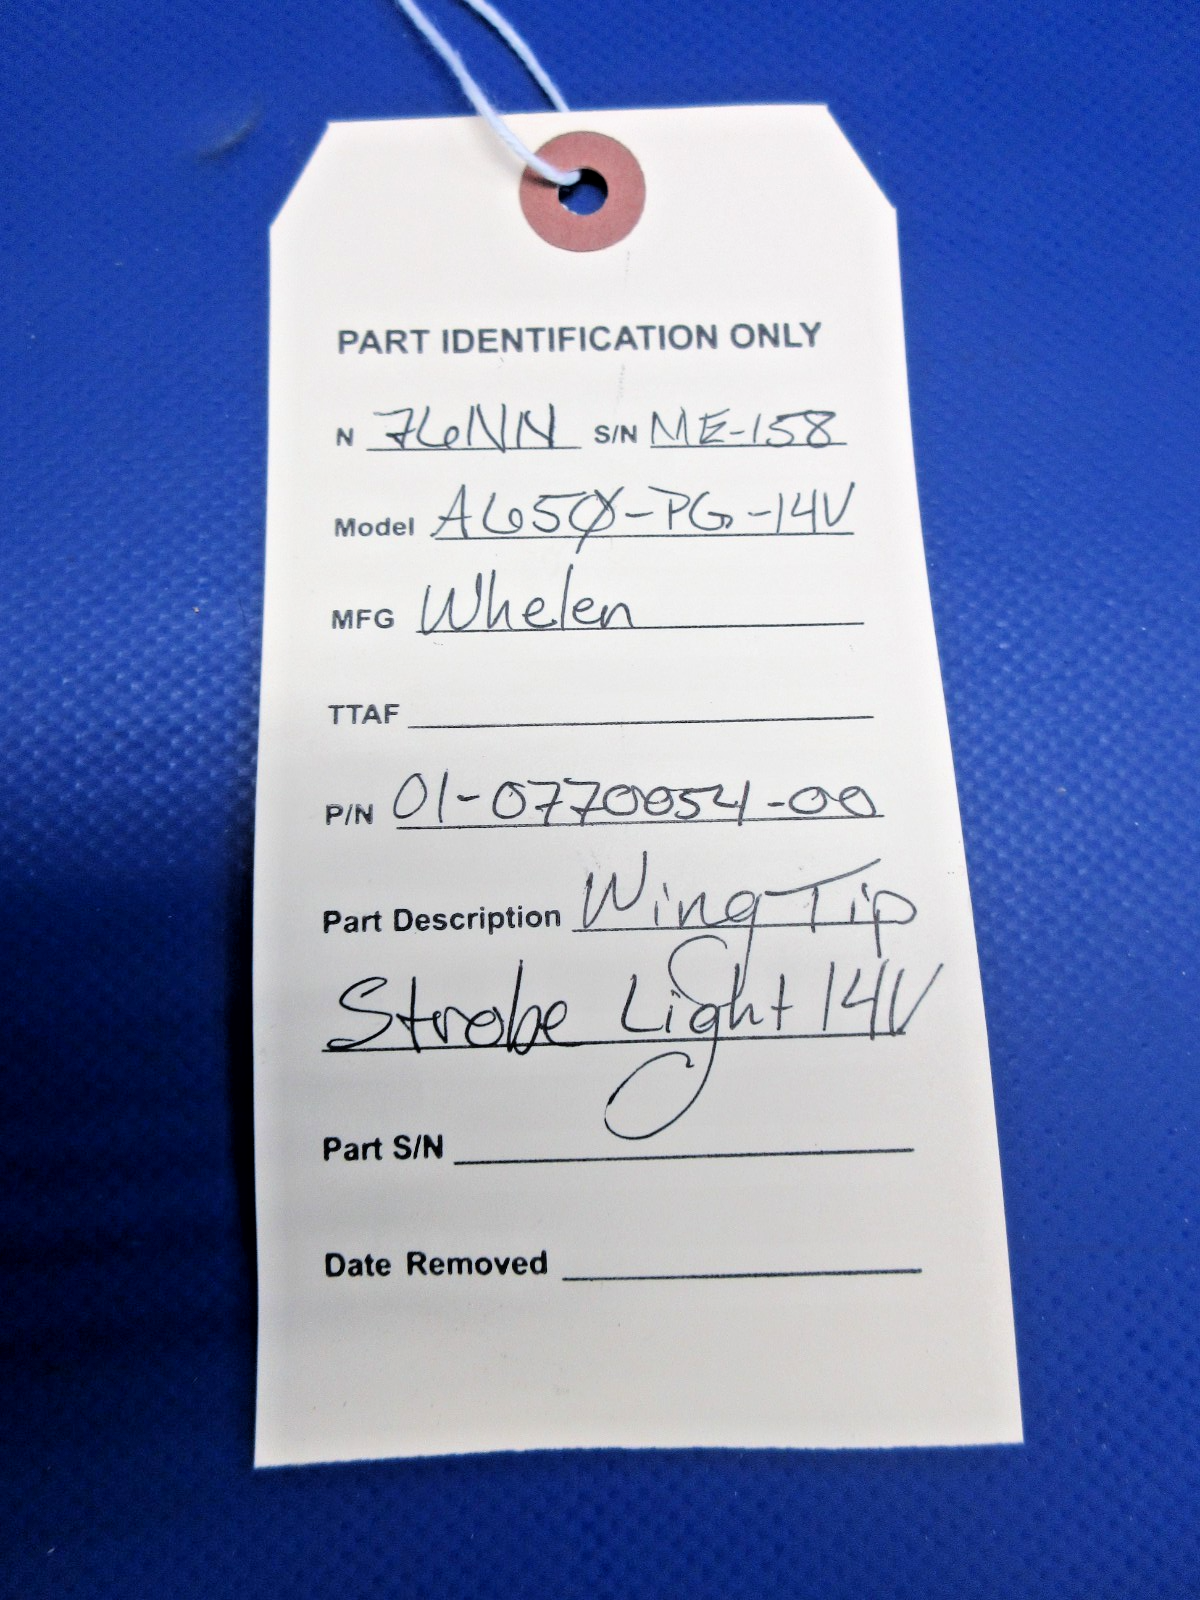 PART IDENTIFICATION ONLY
N 76NN S/N ME-158
Model A650-PG-14V
MFG Whelen
TTAF
P/N 01-0770054-00
Part Description Wing Tip
Strobe Light 14V
Part S/N
Date Removed